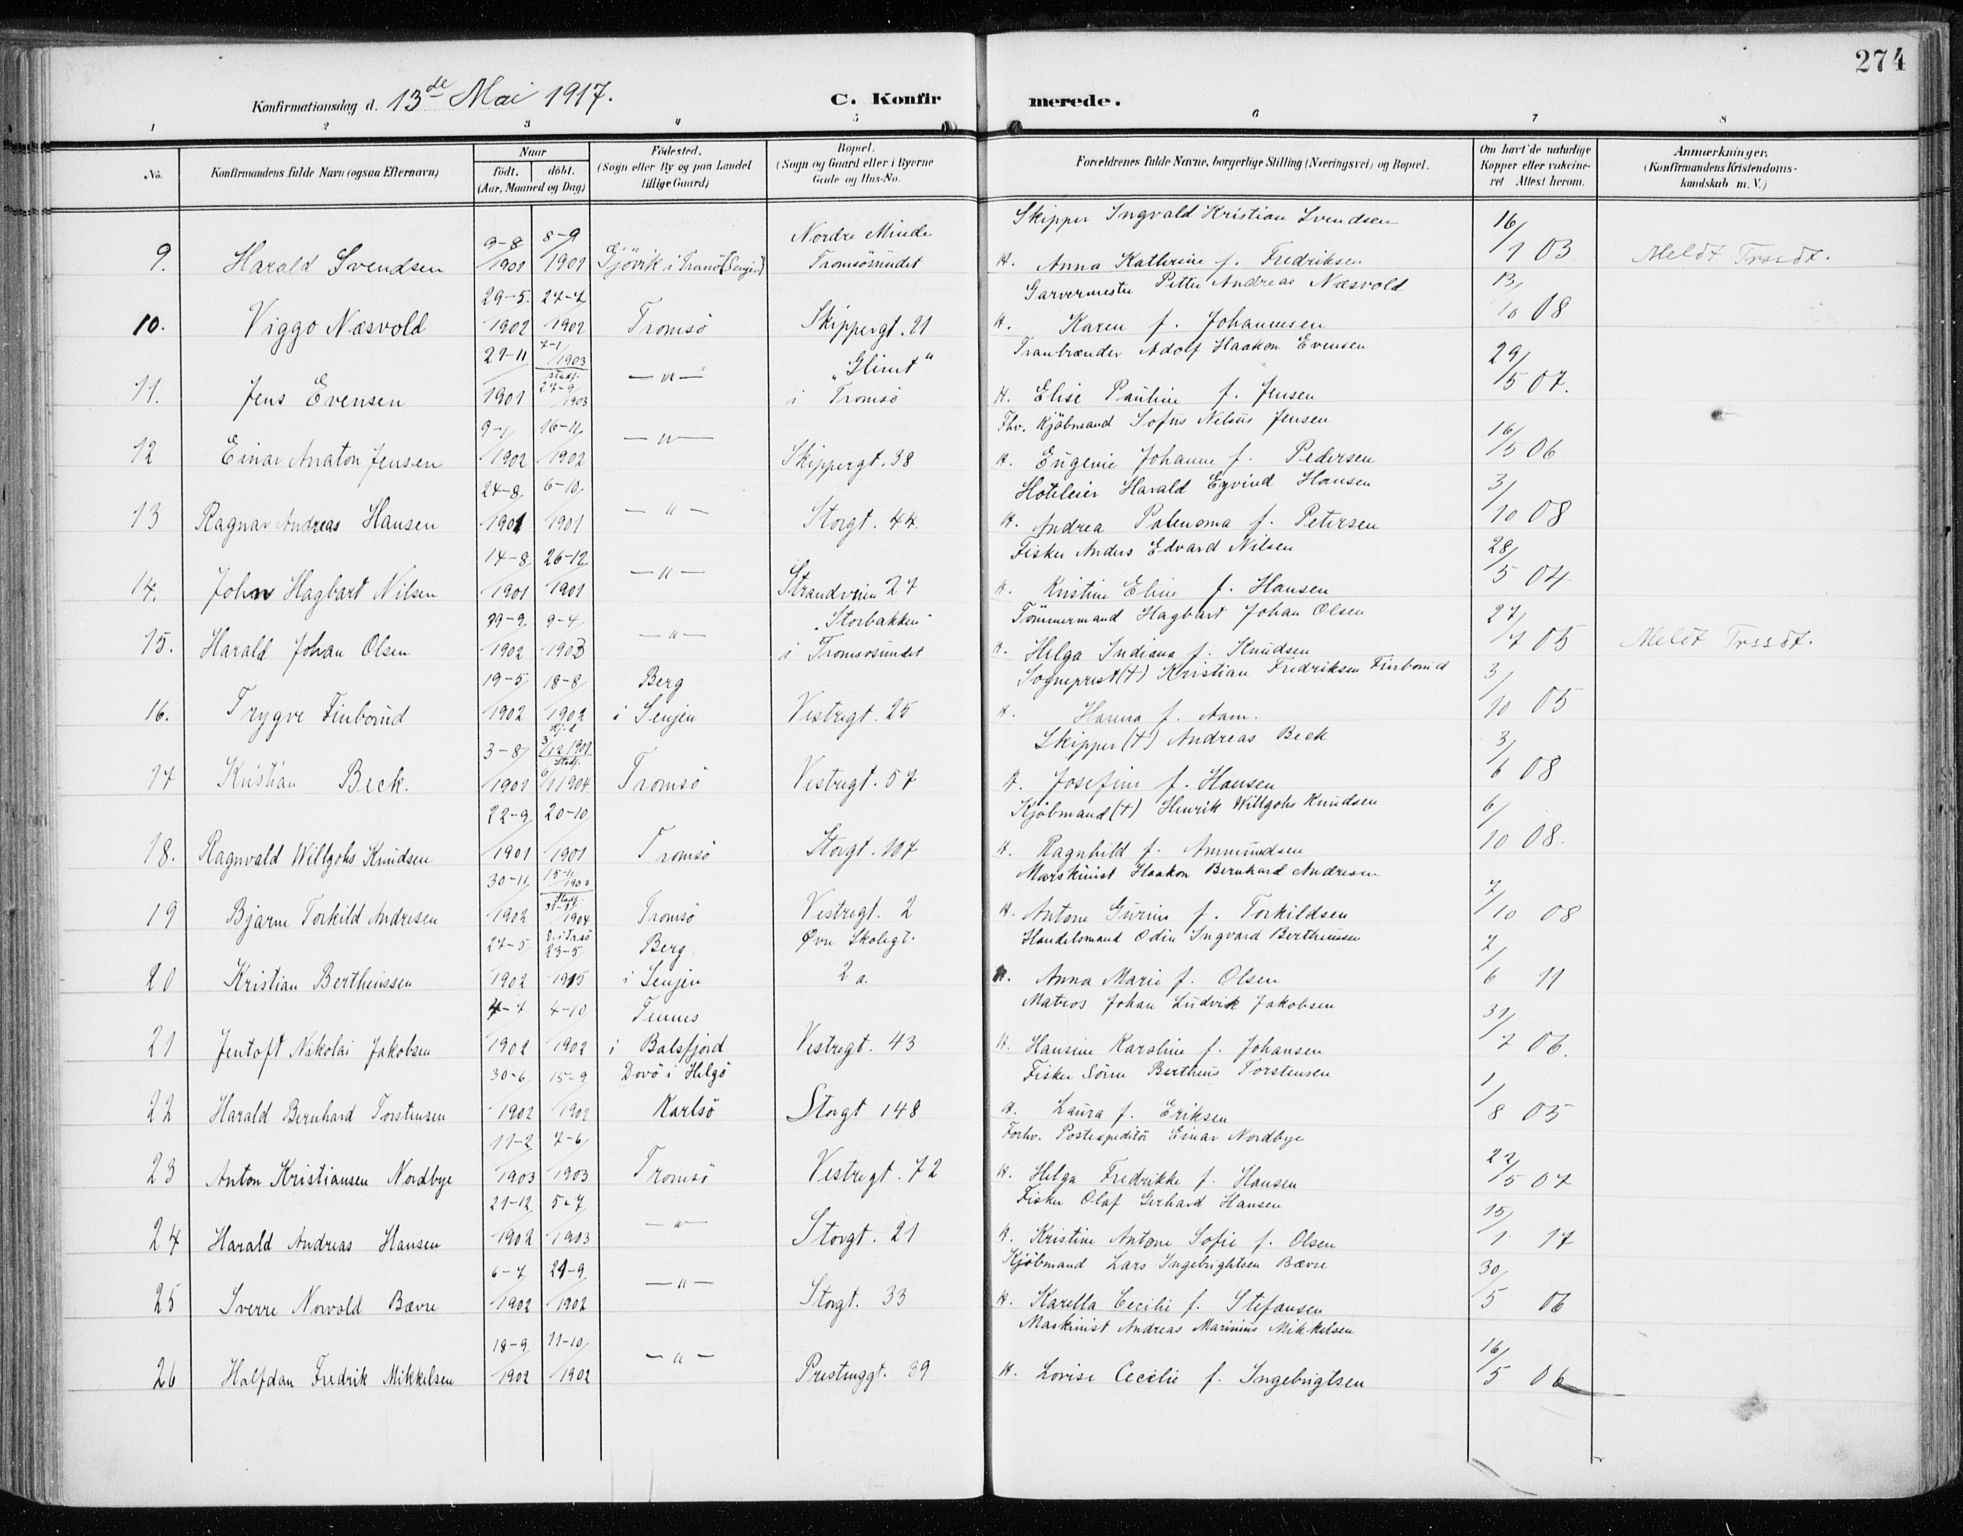 274
Konfirmationsdag d. 13de Mai 1917. C. Konfirmerede.
1 2 3 4 5 6 7 8
No. Konfirmandens fulde Navn (ogsaa Efternavn) Naar født. døbt. (Aar, Maaned og Dag) Fødested. (Sogn eller By og paa Landet tillige Gaard) Bopæl. (Sogn og Gaard eller i Byerne Gade og Hus-No. Forældrenes fulde Navne, borgerlige Stilling (Næringsvei) og Bopæl. Om havt de naturlige Kopper eller vakcineret Attest herom. Anmærkninger. (Konfirmandens Kristendomskundskab m. V.)
Skipper Ingvald Kristian Svendsen
9. Harald Svendsen 9-8/1901 8-9/1901 Gjövik i Tranö (Senjen) Nordre Minde Tromsösundet H. Anna Kathrine f. Fredriksen 16/1 03 Meldt Trssdt.
Garvermester Petter Andreas Næsvold
10. Viggo Næsvold 29-5/1902 27-7/1902 Tromsö Skippergt. 21 H. Karen f. Johannesen 13/10 08
Tranbrænder Adolf Haakon Evensen
11. Jens Evensen 21-11/1901 7-1/1903 stadf. 27-9/1903 -"- "Glimt" i Tromsö H. Elise Pauline f. Jensen 29/5 07.
Fhv. Kjöbmand Sofus Nelius Jensen
12 Einar Anaton Jensen 9-1/1902 16-11/1902 -"- Skippergt. 38 H. Eugenie Johanne f. Pedersen 16/5 06
Hoteleier Harald Eyvind Hansen
13 Ragnar Andreas Hansen 24-8/1901 6-10/1901 -"- Storgt. 44. H. Andrea Palenoma f. Petersen 3/10 08
Fisker Anders Edvard Nilsen
14. John Hagbart Nilsen 14-8/1901 26-12/1901 -"- Strandveien 27 H. Kristine Eline f. Hansen 28/5 04.
Tömmermand Hagbart Johan Olsen
15. Harald Johan Olsen 29-9/1902 9-4/1903 -"- "Storbakken" i Tromsösundet H. Helga Indiana f. Knudsen 27/7 05 Meldt Trssdt.
Sogneprest (†) Kristian Fredriksen Finborud
16. Trygve Finborud 19-5/1902 18-8/1902 Berg i Senjen Vestregt. 25 H. Hanna f. Aam. 3/10 05
Skipper (†) Andreas Beck
17 Kristian Beck. 3-8/1901 3/12 1901 Stadf. 6/1 1904 Tromsö Vestregt. 57 H. Josefine f. Hansen 3/6 08
Kjöbmand (†) Henrik Willgohs Knudsen
18. Ragnvald Willgohs Knudsen 22-9/1901 20-10/1901 Tromsö Storgt. 107 H. Ragnhild f. Ammundsen 6/10 08.
Marskinist Haakon Bernhard Andresen
19 Bjarne Torkild Andresen 30-11/1902 15-11/1903 Tromsö Vestregt. 2 H. Antone Gurine f. Torkildsen 7/10 08
Handelsmand Odin Ingvard Bertheussen
20 Kristian Bertheussen 27-5/1902 23-5/1915 Berg i Senjen Övre Skolegt. 2 a. H. Anna Marie f. Olsen 7/6 11
Matros Johan Ludvik Jakobsen
21 Jentoft Nikolai Jakobsen 4-7/1902 4-10/1902 Tennes i Balsfjord Vestregt. 43 H. Hansine Karoline f. Johansen 31/7 06.
Fisker Sören Bertheus Torstensen
22 Harald Bernhard Torstensen 30-6/1902 15-9/1902 Dovö i Helgö Karlsö Storgt 148 H. Laura f. Eriksen 1/8 05
Forhv. Postexpeditör Einar Nordbye
23 Anton Kristiansen Nordbye 11-2/1903 7-6/1903 Tromsö Vestregt. 72 H. Helga Fredrikke f. Hansen 22/5 07
Fisker Olaf Gerhard Hansen
24 Harald Andreas Hansen 21-12/1902 5-7/1903 -"- Storgt. 21 H. Kristine Antone Sofie f. Olsen 15/1 17
Kjöbmand Lars Ingebrightsen Bævre
25 Sverre Norvald Bævre 6-7/1902 21-9/1902 -"- Storgt. 33 H. Karella Cecilie f. Stefansen 30/5 06
Maskinist Andreas Marinius Mikkelsen
26 Halfdan Fredrik Mikkelsen 18-9/1902 11-10/1902 -"- Prestenggt. 39 H. Lovise Cecilie f. Ingebrigtsen 16/5 06